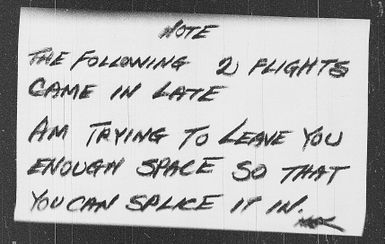 NOTE
THE FOLLOWING 2 FLIGHTS
CAME IN LATE
AM TRYING TO LEAVE YOU
ENOUGH SPACE SO THAT
YOU CAN SPLICE IT IN.